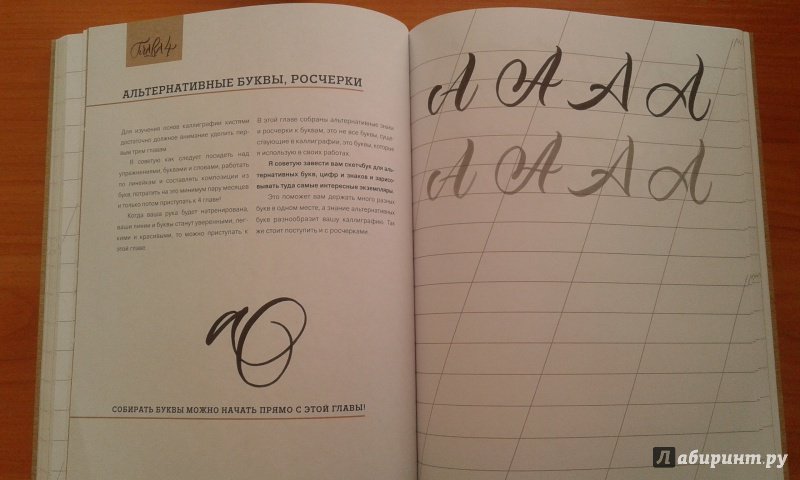 Глава 4
АЛЬТЕРНАТИВНЫЕ БУКВЫ, РОСЧЕРКИ
Для изучения основ каллиграфии кистями
достаточно должное внимание уделить пер-
вым трем главам.
Я советую как следует посидеть над
упражнениями, буквами и словами, работать
по линейкам и составлять композиции из
букв, потратить на это минимум пару месяцев
и только потом приступать к 4 главе!
Когда ваша рука будет натренирована,
ваши линии и буквы станут уверенными, лег-
кими и красивыми, то можно приступать к
этой главе.
В этой главе собраны альтернативные знаки
и росчерки к буквам, это не все буквы, суще-
ствующие в каллиграфии, это буквы, которые
я использую в своих работах.
Я советую завести вам скетчбук для аль-
тернативных букв, цифр и знаков и зарисо-
вывать туда самые интересные экземпляры.
Это поможет вам держать много разных
букв в одном месте, а знание альтернативных
букв разнообразит вашу каллиграфию. Так
же стоит поступить и с росчерками.
СОБИРАТЬ БУКВЫ МОЖНО НАЧАТЬ ПРЯМО С ЭТОЙ ГЛАВЫ!
А А А А
А А А А
Лабиринт.ру